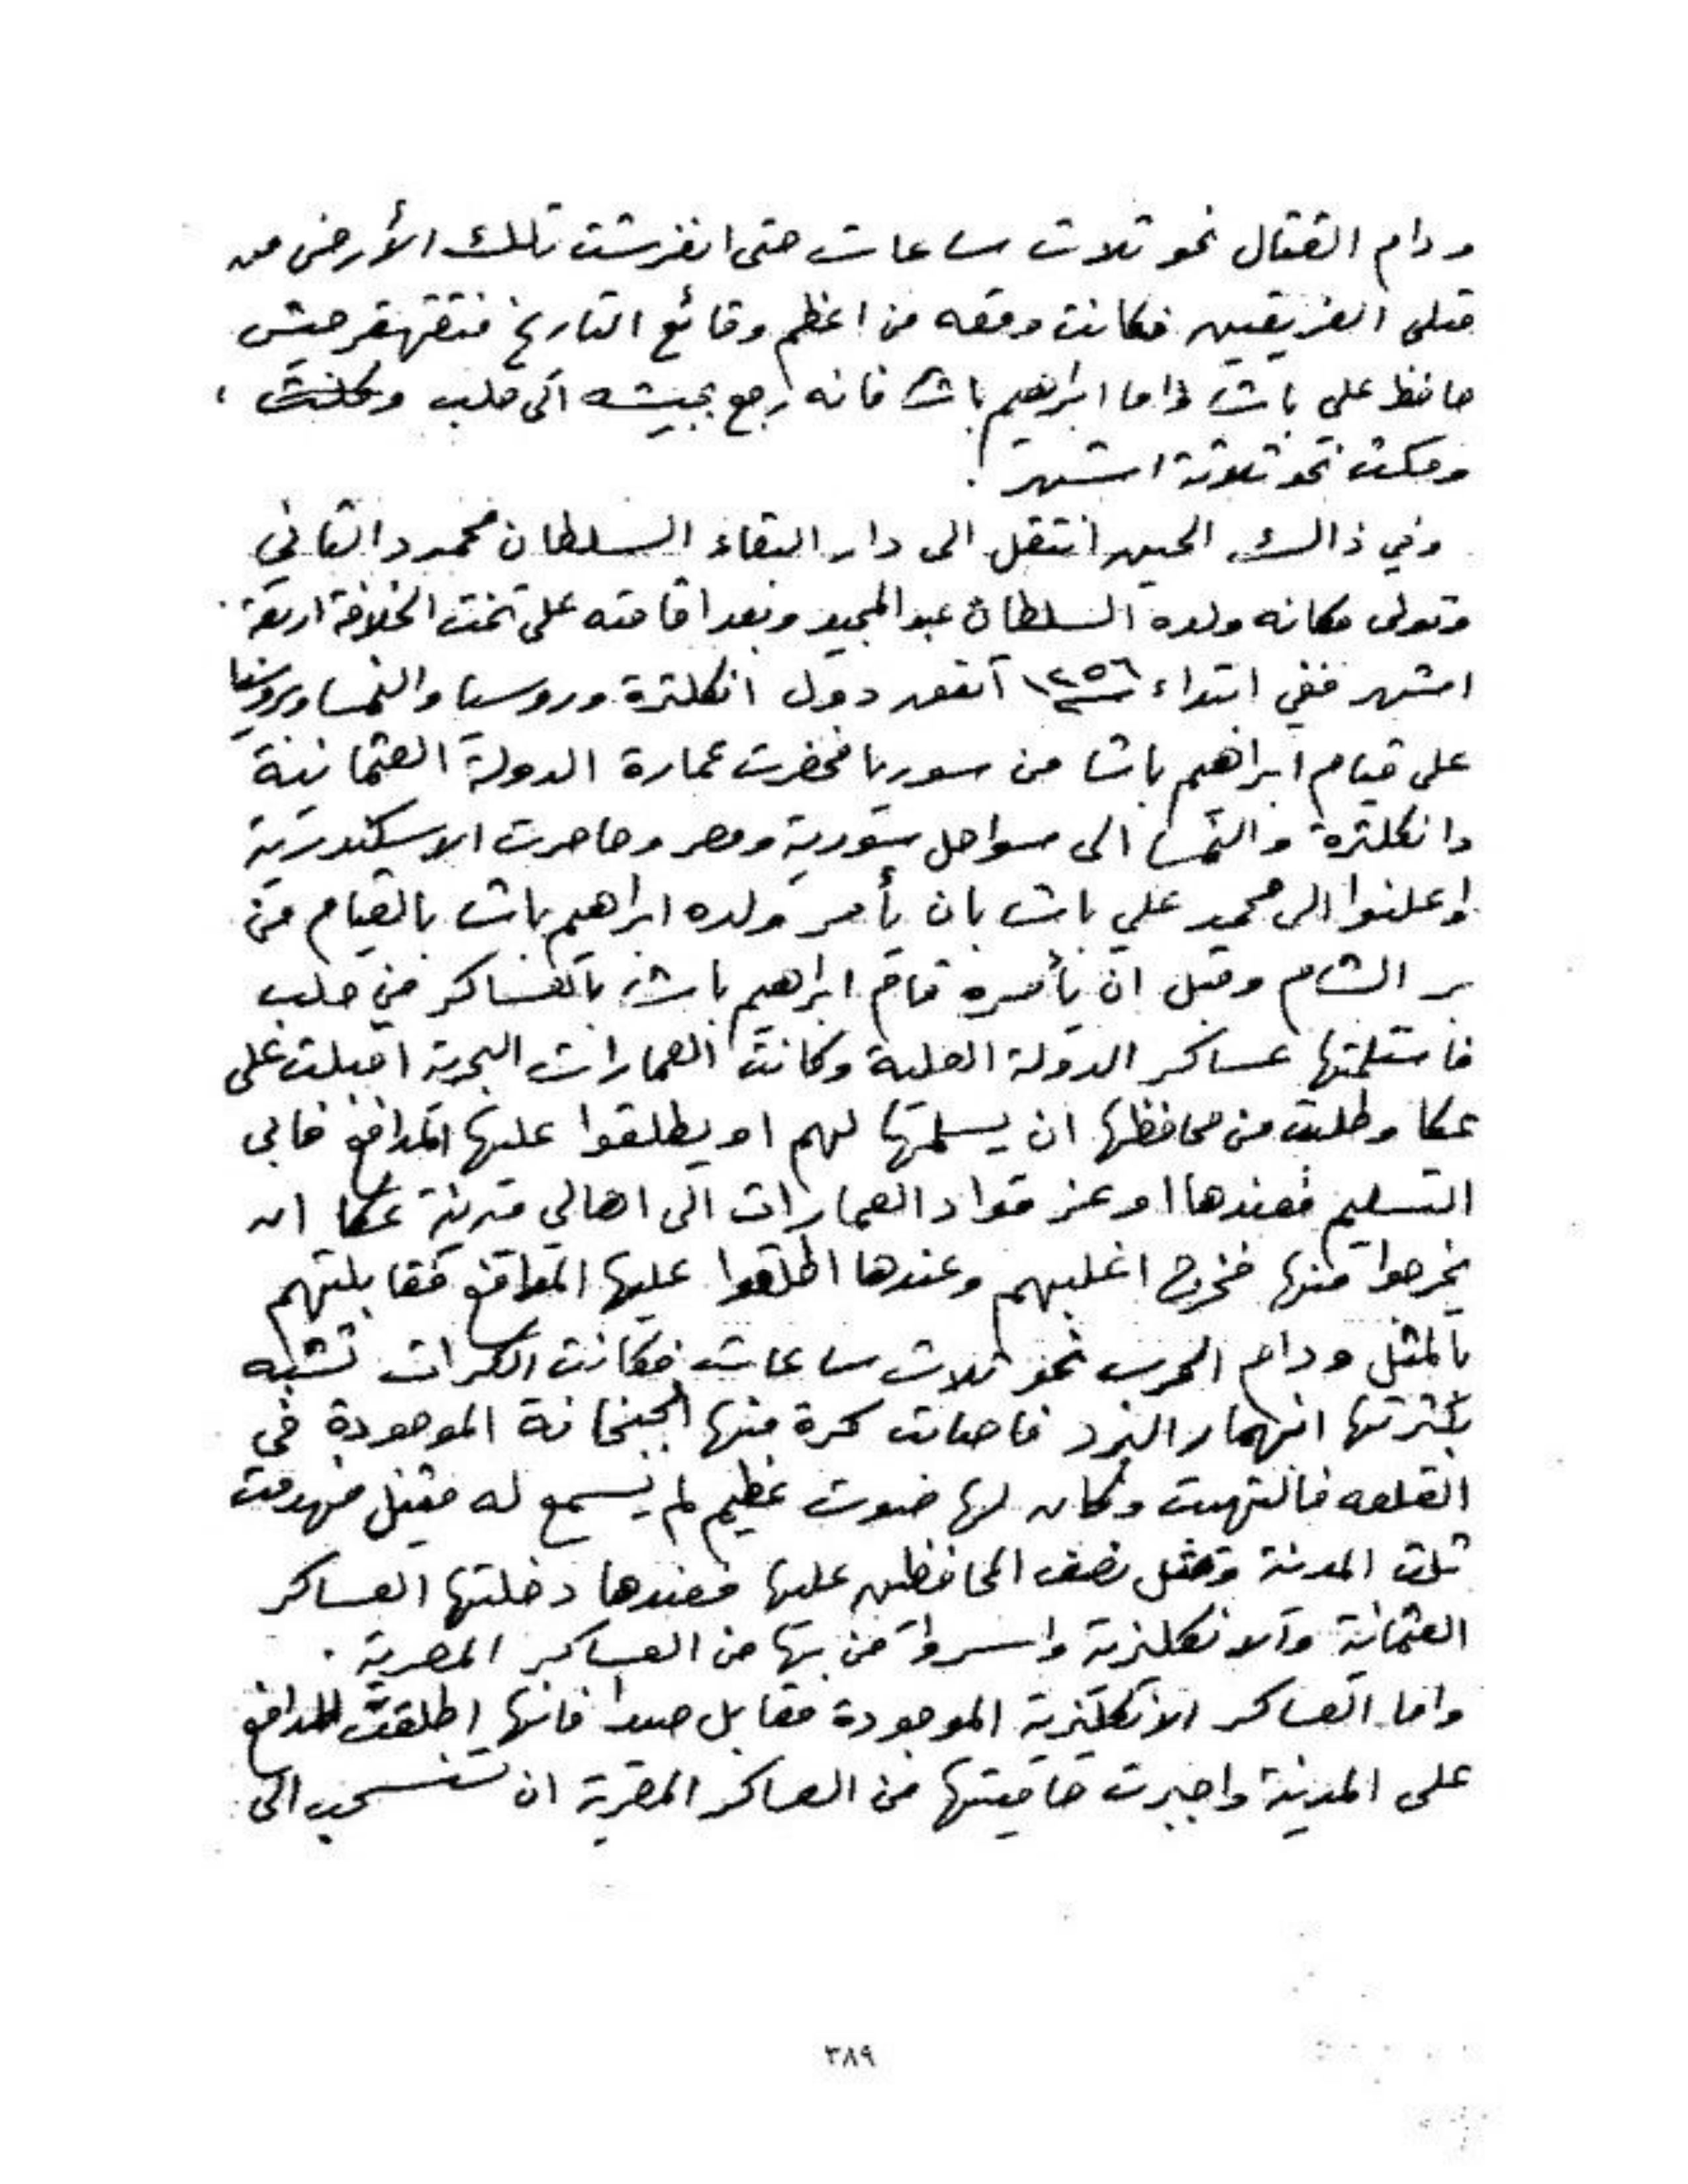 ودام القتال نحو ثلاث ساعات حتى انفرشت تلك الأرض من
قتلى الفريقين فكانت وقعه من اعظم وقائع التاريخ فتقهقر جيش
حافظ علي باشا واما ابراهيم باشا فانه رجع بجيشه الى حلب
ومكث نحو ثلاثة اشهر .
وفي ذالك الحين انتقل الى دار البقاء السلطان محمود الثاني
وتولى مكانه ولده السلطان عبد المجيد وبعد اقامته على تخت الخلافة اربعة
اشهر ففي ابتداء سنة ١٢٥٦ اتفق دول انكلترة وروسيا والنمسا وبروسيا
على قيام ابراهيم باشا من سوريا فحضرت عمارة الدولة العثمانية
وانكلترة والنمسا الى سواحل سورية ومصر وحاصرت الاسكندرية
واعلنوا الى محمد علي باشا بان يأمر ولده ابراهيم باشا بالقيام من
بر الشام وقبل ان يأمره قام ابراهيم باشا بالعساكر من حلب
فاستلمتها عساكر الدولة العلية وكانت العمارات البحرية اقبلت على
عكا وطلبت من محافظها ان يسلمها لهم او يطلقوا عليها المدافع فابى
التسليم فعندها اوعز قواد العمارات الى اهالي مدينة عكا ان
يخرجوا منها فخرج اغلبهم وعندها اطلقوا عليها المدافع فقابلتهم
بالمثل ودام الحرب نحو ثلاث ساعات فكانت الكرات تشبه
بكثرتها انهمار البرد فاصابت كرة منها الجبخانة الموجودة في
القلعه فالتهبت وكان لها صوت عظيم لم يسمع له مثيل فهدمت
ثلث المدينة وقتل نصف المحافظين عليها فعندها دخلتها العساكر
العثمانية والانكليزية واسروا من بها من العساكر المصرية .
واما العساكر الانكليزية الموجودة مقابل صيدا فانها اطلقت المدافع
على المدينة واجبرت حاميتها من العساكر المصرية ان تنسحب الى
٣٨٩